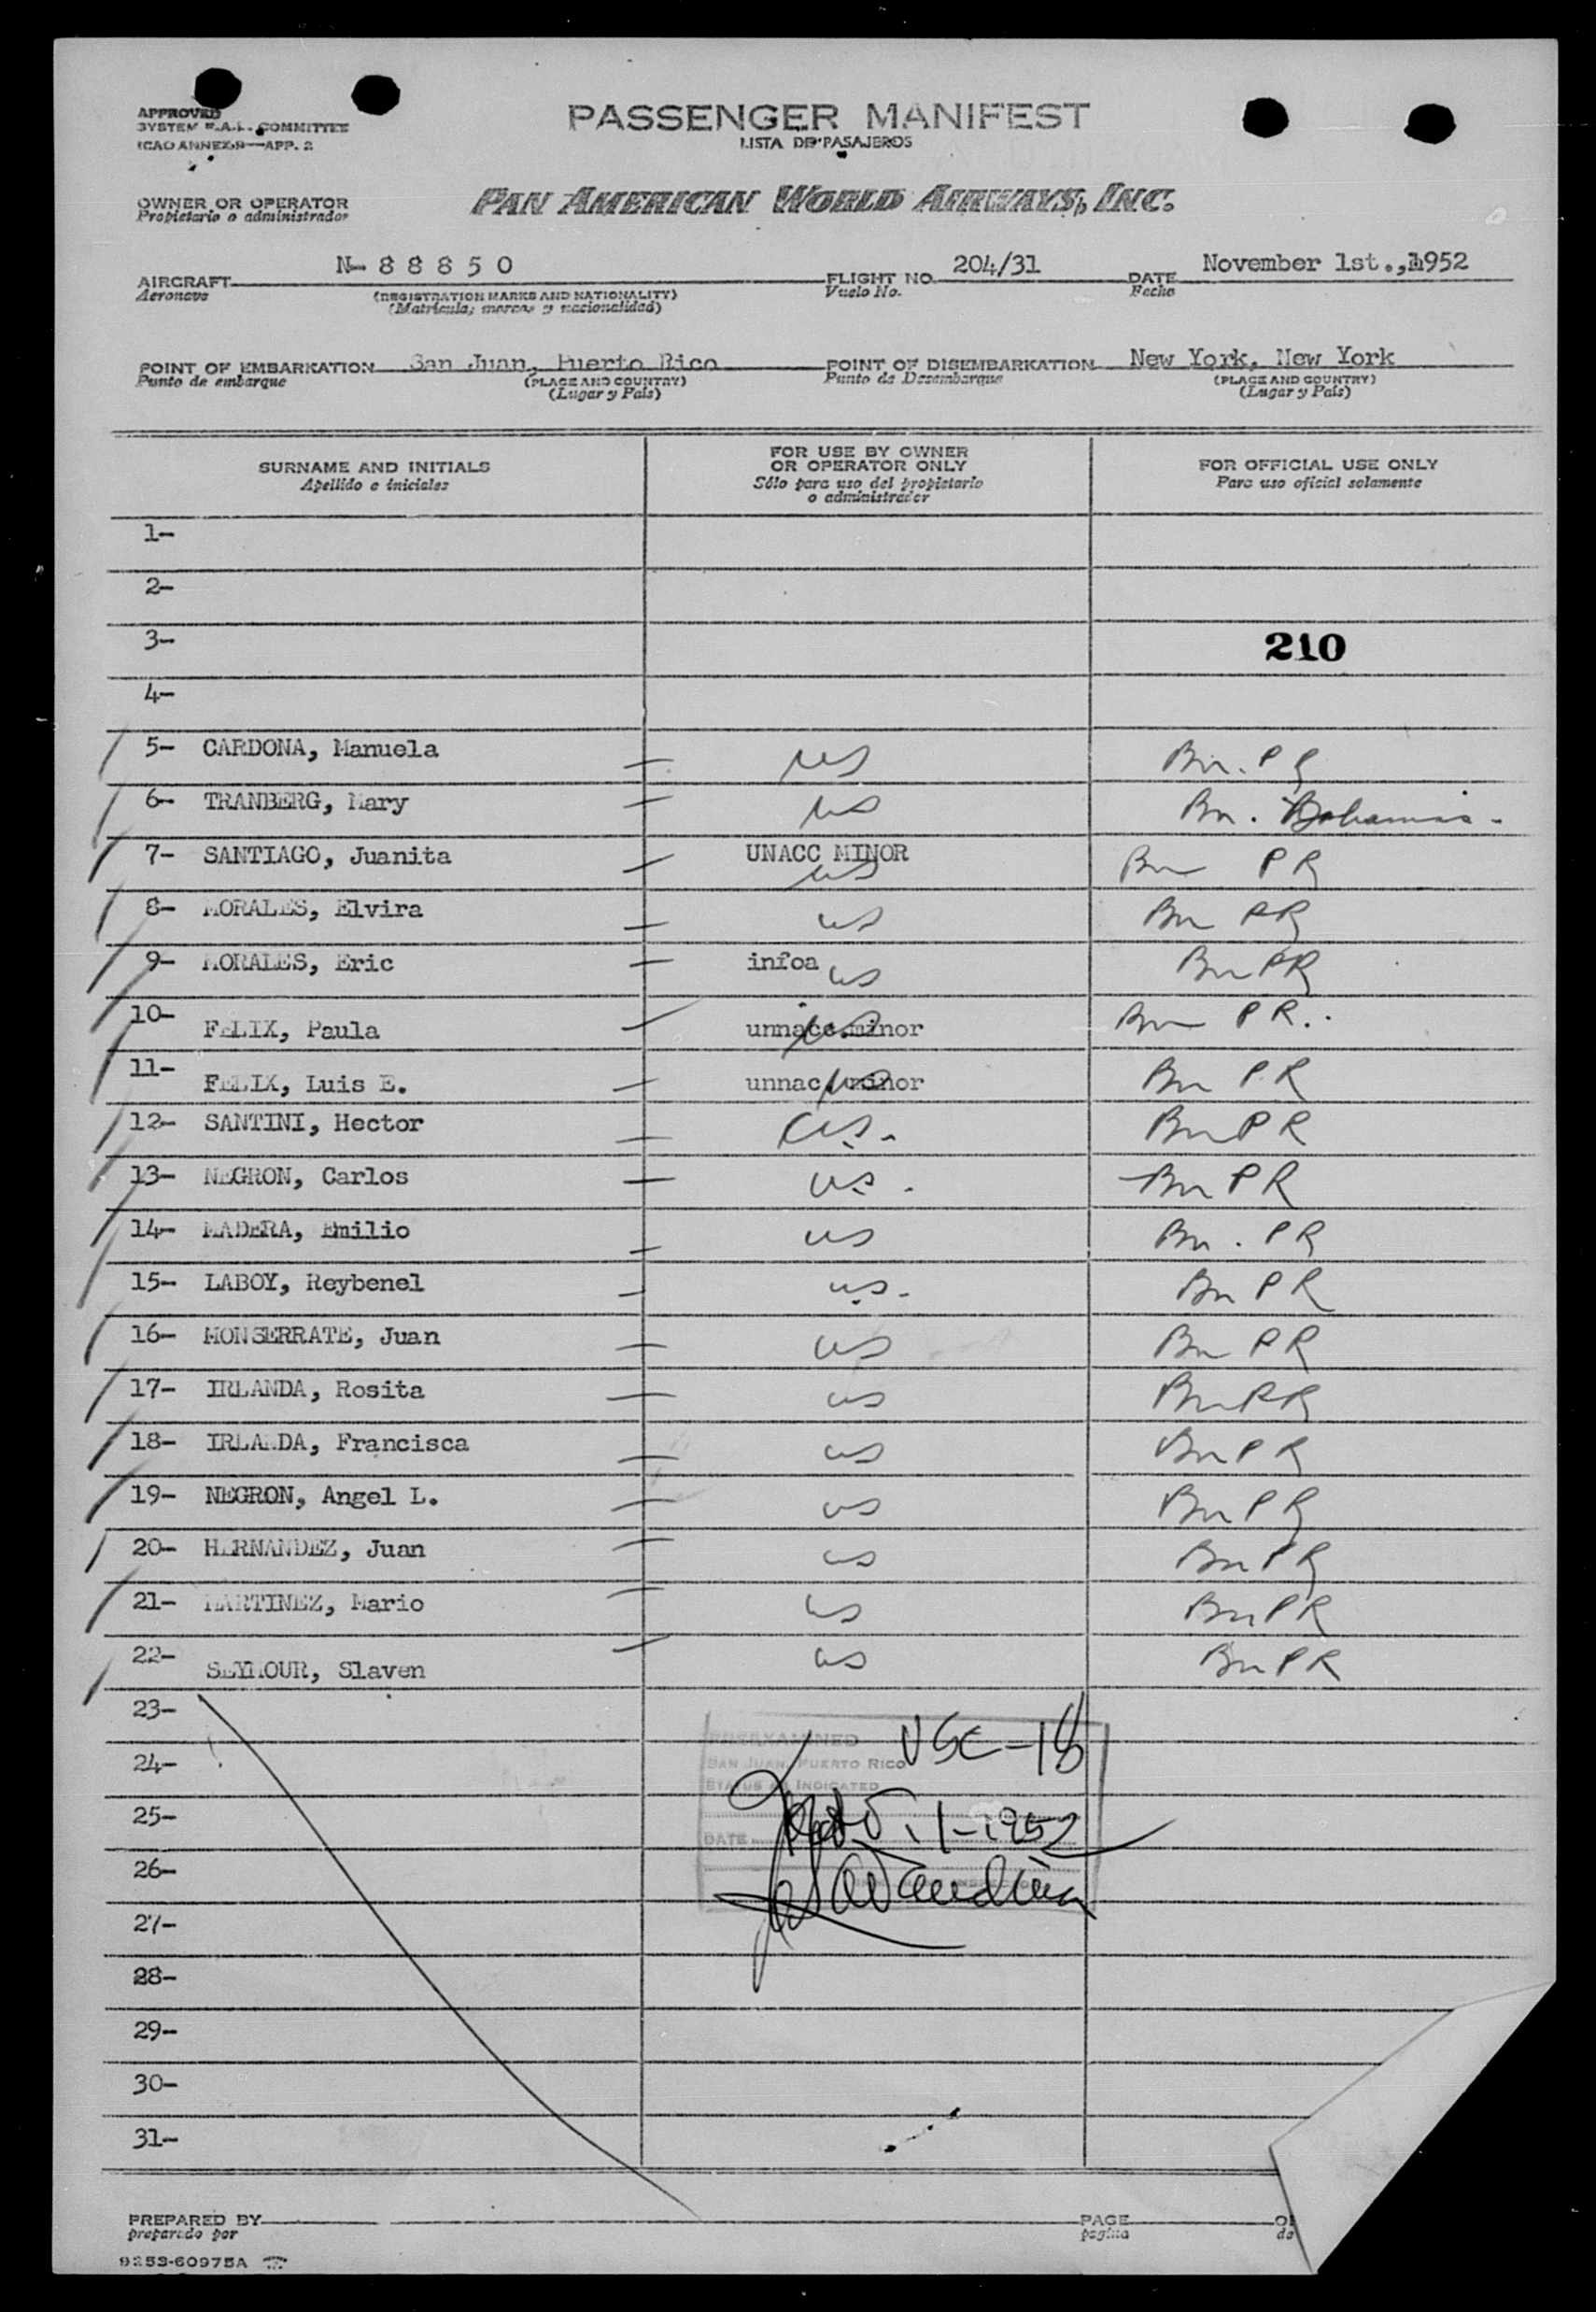 APPROVED
SYSTEM F.A.L. COMMITTEE
ICAO ANNEX 9—APP. 2
PASSENGER MANIFEST
LISTA DE PASAJEROS
OWNER OR OPERATOR
Propietario o administrador
PAN AMERICAN WORLD AIRWAYS, INC.
AIRCRAFT N-88850 FLIGHT NO. 204/31 DATE November 1st.,1952
Aeronave (REGISTRATION MARKS AND NATIONALITY) Vuelo No. Fecha
(Matrícula, marcas y nacionalidad)
POINT OF EMBARKATION San Juan, Puerto Rico POINT OF DISEMBARKATION New York, New York
Punto de embarque (PLACE AND COUNTRY) Punto de Desembarque (PLACE AND COUNTRY)
(Lugar y País) (Lugar y País)
SURNAME AND INITIALS FOR USE BY OWNER OR OPERATOR ONLY FOR OFFICIAL USE ONLY
Apellido e iniciales Sólo para uso del propietario o administrador Para uso oficial solamente
1-
2-
3- 210
4-
5- CARDONA, Manuela US Bn. PR
6- TRANBERG, Mary US Bn. Bahamas.
7- SANTIAGO, Juanita UNACC MINOR US Bn PR
8- MORALES, Elvira US Bn PR
9- MORALES, Eric infoa US Bn PR
10- FELIX, Paula unnacc.minor US Bn PR.
11- FELIX, Luis E. unnac minor US Bn P.R
12- SANTINI, Hector U.S. Bn PR
13- NEGRON, Carlos U.S. Bn PR
14- MADERA, Emilio US Bn. PR
15- LABOY, Reybenel U.S. Bn PR
16- MONSERRATE, Juan US Bn PR
17- IRLANDA, Rosita US Bn PR
18- IRLANDA, Francisca US Bn PR
19- NEGRON, Angel L. US Bn PR
20- HERNANDEZ, Juan US Bn PR
21- MARTINEZ, Mario US Bn PR
22- SEYMOUR, Slaven US Bn PR
23-
PREEXAMINED USC-18
24- SAN JUAN, PUERTO RICO
STATUS AS INDICATED
25-
DATE 1-1952
26-
27-
28-
29-
30-
31-
PREPARED BY PAGE OF
preparado por pagina de
9253-60975A